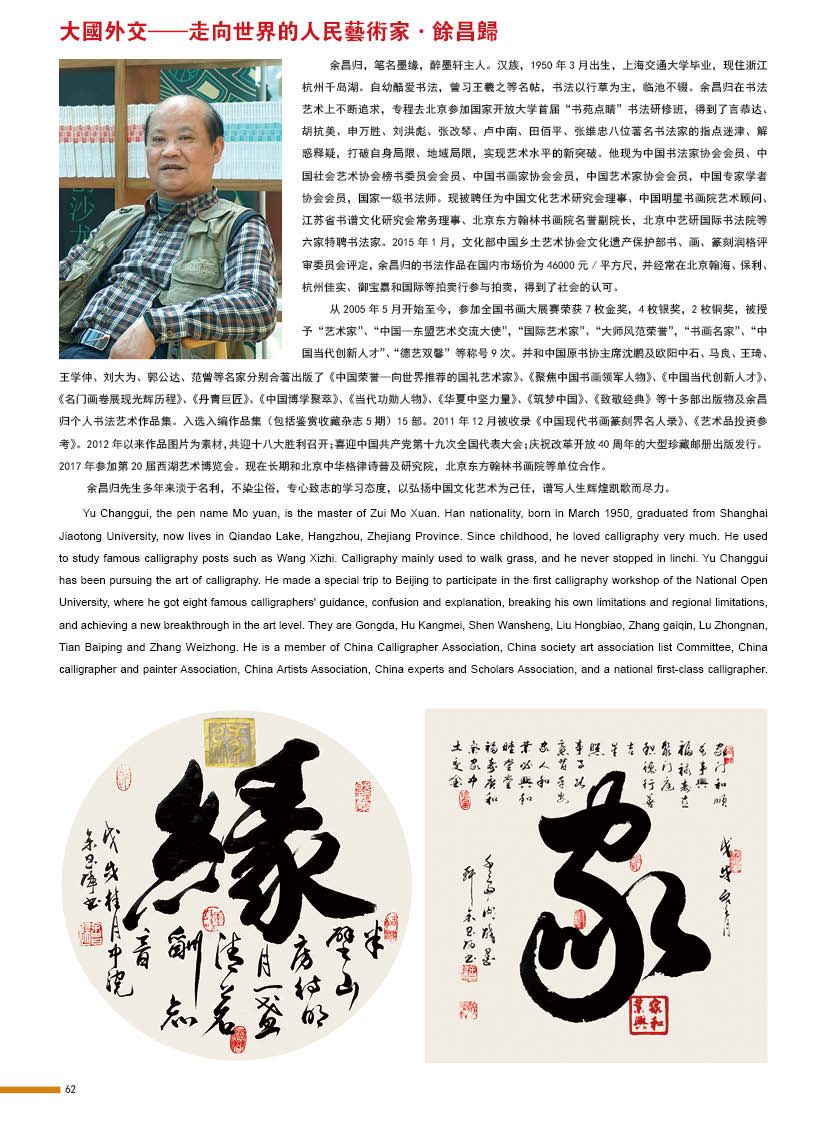 大國外交——走向世界的人民藝術家·餘昌歸
余昌归，笔名墨缘，醉墨轩主人。汉族，1950 年 3 月出生，上海交通大学毕业，现住浙江
杭州千岛湖。自幼酷爱书法，曾习王羲之等名帖，书法以行草为主，临池不辍。余昌归在书法
艺术上不断追求，专程去北京参加国家开放大学首届“书苑点睛”书法研修班，得到了言恭达、
胡抗美、申万胜、刘洪彪、张改琴、卢中南、田佰平、张维忠八位著名书法家的指点迷津、解
惑释疑，打破自身局限、地域局限，实现艺术水平的新突破。他现为中国书法家协会会员、中
国社会艺术协会榜书委员会会员、中国书画家协会会员，中国艺术家协会会员，中国专家学者
协会会员，国家一级书法师。现被聘任为中国文化艺术研究会理事、中国明星书画院艺术顾问、
江苏省书谱文化研究会常务理事、北京东方翰林书画院名誉副院长，北京中艺研国际书法院等
六家特聘书法家。2015 年 1 月，文化部中国乡土艺术协会文化遗产保护部书、画、篆刻润格评
审委员会评定，余昌归的书法作品在国内市场价为 46000 元 / 平方尺，并经常在北京翰海、保利、
杭州佳实、御宝嘉和国际等拍卖行参与拍卖，得到了社会的认可。
从 2005 年 5 月开始至今，参加全国书画大展赛荣获 7 枚金奖，4 枚银奖，2 枚铜奖，被授
予“艺术家”、“中国—东盟艺术交流大使”，“国际艺术家”、“大师风范荣誉”，“书画名家”、“中
国当代创新人才”、“德艺双馨”等称号 9 次。并和中国原书协主席沈鹏及欧阳中石、马良、王琦、
王学仲、刘大为、郭公达、范曾等名家分别合著出版了《中国荣誉—向世界推荐的国礼艺术家》、《聚焦中国书画领军人物》、《中国当代创新人才》、
《名门画卷展现光辉历程》、《丹青巨匠》、《中国博学聚萃》、《当代功勋人物》、《华夏中坚力量》、《筑梦中国》、《致敬经典》等十多部出版物及余昌
归个人书法艺术作品集。入选入编作品集（包括鉴赏收藏杂志 5 期）15 部。2011 年 12 月被收录《中国现代书画篆刻界名人录》、《艺术品投资参
考》。2012 年以来作品图片为素材，共迎十八大胜利召开；喜迎中国共产党第十九次全国代表大会；庆祝改革开放 40 周年的大型珍藏邮册出版发行。
2017 年参加第 20 届西湖艺术博览会。现在长期和北京中华格律诗普及研究院，北京东方翰林书画院等单位合作。
余昌归先生多年来淡于名利，不染尘俗，专心致志的学习态度，以弘扬中国文化艺术为己任，谱写人生辉煌凯歌而尽力。
Yu Changgui, the pen name Mo yuan, is the master of Zui Mo Xuan. Han nationality, born in March 1950, graduated from Shanghai
Jiaotong University, now lives in Qiandao Lake, Hangzhou, Zhejiang Province. Since childhood, he loved calligraphy very much. He used
to study famous calligraphy posts such as Wang Xizhi. Calligraphy mainly used to walk grass, and he never stopped in linchi. Yu Changgui
has been pursuing the art of calligraphy. He made a special trip to Beijing to participate in the first calligraphy workshop of the National Open
University, where he got eight famous calligraphers' guidance, confusion and explanation, breaking his own limitations and regional limitations,
and achieving a new breakthrough in the art level. They are Gongda, Hu Kangmei, Shen Wansheng, Liu Hongbiao, Zhang gaiqin, Lu Zhongnan,
Tian Baiping and Zhang Weizhong. He is a member of China Calligrapher Association, China society art association list Committee, China
calligrapher and painter Association, China Artists Association, China experts and Scholars Association, and a national first-class calligrapher.
緣
半
壁山
房待明
月一盏
清茗
酬知
音
戊戌桂月中浣
余昌歸书
家门和順
福禄寿立
积德行善
吉
星
照
家人和
業必興和
家
家和
業興
62